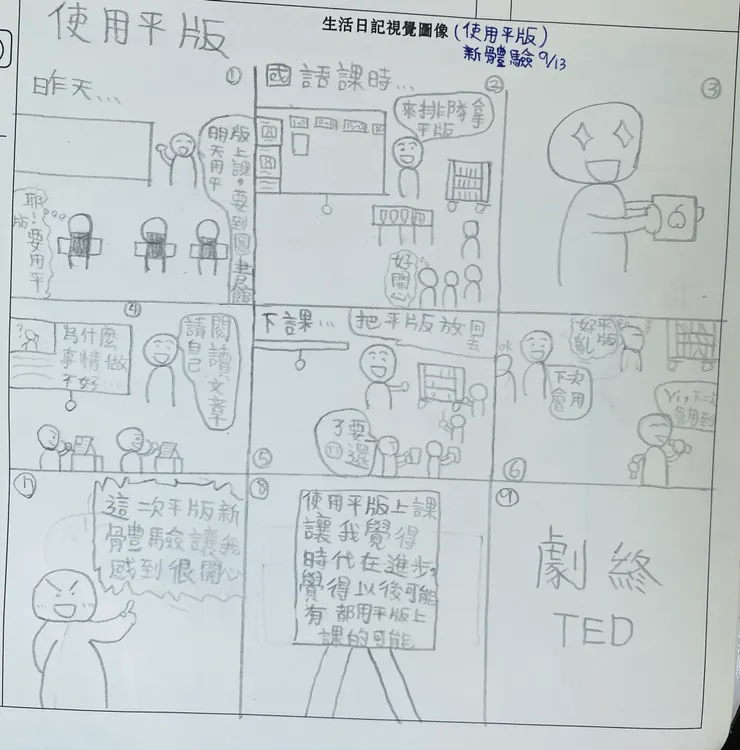 生活日記視覺圖像(使用平版)
新體驗9/13
使用平版
①
昨天...
明天用平
版上課,要到圖書館
耶!要用平
版
②
國語課時...
來排隊拿
平版
好開心
③
④
為什麼
事情做
不好...
請自己
閱讀文章
⑤
下課...
把平版放回去
要還
了
⑥
ok
下次
會用
平版
好亂
Yi,下二
會用到
⑦
這次平版新
體驗讓我
感到很開心
⑧
使用平版上課
讓我覺得
時代在進步,
覺得以後可能
有都用平版上
課的可能
⑨
劇終
TED